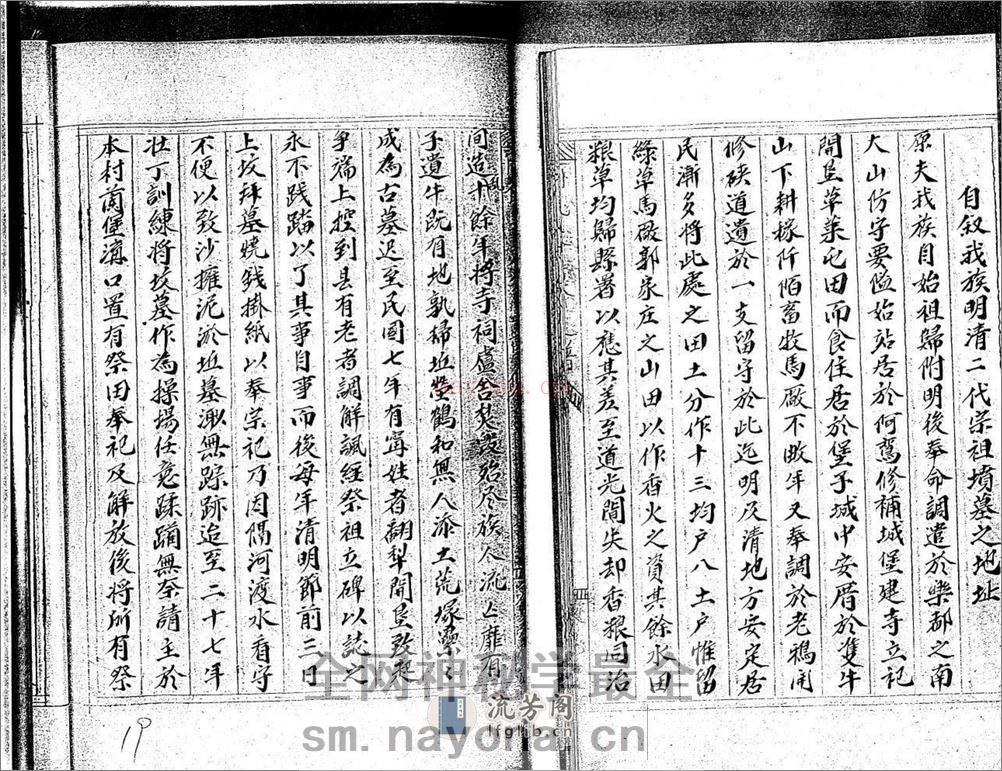 自叙我族明清二代宗祖墳墓之地址
原夫我族自始祖歸附明後奉命調遣於樂都之南
大山仿字要隘始站居於何鸞修補城堡建寺立祀
開昱草萊屯田而食住居於堡子城中安厝於隻牛
山下耕稼阡陌畜牧馬廠不敢年又奉調於老鴉
修硤道遺於一支留守於此迄明及清地方安定居
民漸多將此處之田土分作十三均户八土户惟留
綠草馬廠郭泉庄文山田以作香火之資其餘水田
粮草均歸縣署以應其差至道光間失却香粮同治
间造 餘年將寺祠盧舍焚毁殆尽族人流亡靡有
孑遺牛阮有地孰掃坵塋鶴和無人添土荒塚潔
成為古墓迟至民國七年有寗姓者翻犁開昱致起
爭端上控到县有老者調解諷經祭祖立碑以誌之
永不践踏以了其事自事而後每年清明節前三日
上坟拜墓燒錢掛紙以奉宗祀乃因隅河渡水看守
不便以致沙擁泥淤坵墓溉無踪跡迨至二十七年
壯丁訓練將坟墓作為操場任意蹂躪無奈請主於
本村蘭堡溝口置有祭田奉祀及解放後將所有祭
19
全网神秘学最全
流芳阁
lfglib.cn
sm.nayona.cn